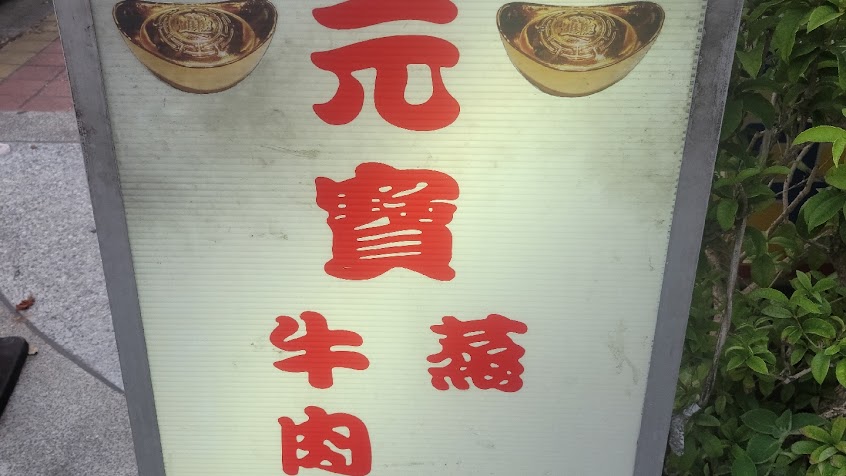 元寶
蒸
牛肉